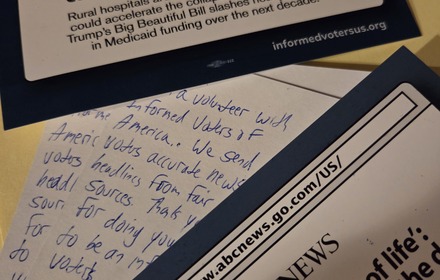 Rural hospitals a
could accelerate the collap
Trump's Big Beautiful Bill slashes
in Medicaid funding over the next decade.
informedvotersus.org
a volunteer with
Informed Voters of
America.. We send
Americ voters accurate news
voters headlines from fair
headl sources. Thank yo
sour for doing you
For to be an inf
to voter
www.abcnews.go.com/US/
NEWS
of life':